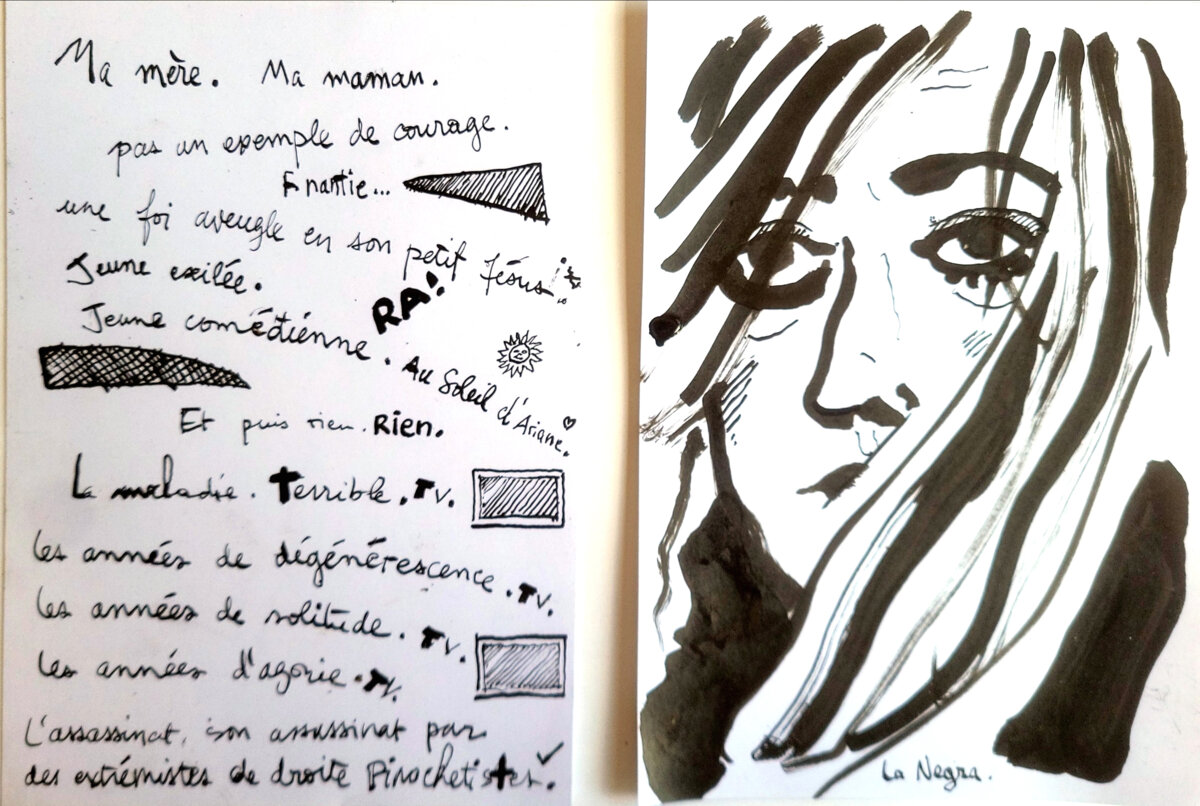 Ma mère. Ma maman.
pas un exemple de courage.
Enantie...
une foi aveugle en son petit Jésus!
Jeune exilée.
RA!
Jeune comédienne.
Au Soleil d'Ariane.
Et puis rien. Rien.
La maladie. Terrible. TV.
les années de dégénérescence. TV.
les années de solitude. TV.
les années d'agonie. TV.
L'assassinat, son assassinat par
des extrémistes de droite Pinochetistes.
La Negra.